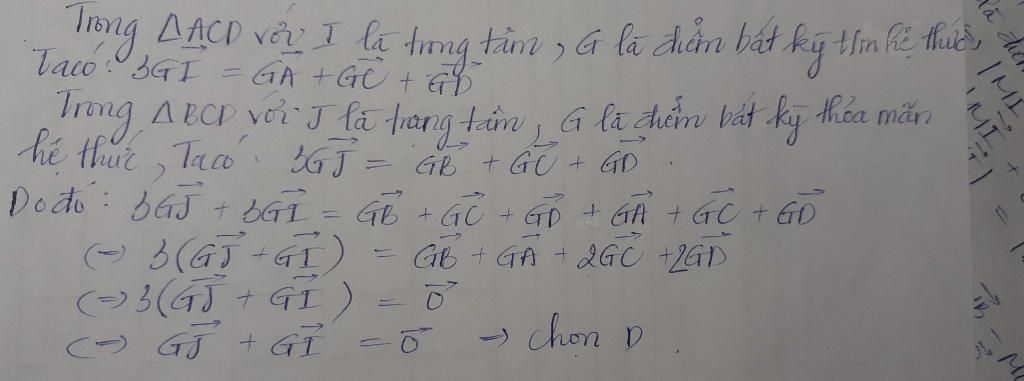 Trong ΔACD với I là trọng tâm, G là điểm bất kỳ t/m hệ thức,
Ta có: 3GI⃗ = GA⃗ + GC⃗ + GD⃗
Trong ΔBCD với J là trọng tâm, G là điểm bất kỳ thỏa mãn
hệ thức, Ta có: 3GJ⃗ = GB⃗ + GC⃗ + GD⃗.
Do đó: 3GJ⃗ + 3GI⃗ = GB⃗ + GC⃗ + GD⃗ + GA⃗ + GC⃗ + GD⃗
(=) 3(GJ⃗ + GI⃗) = GB⃗ + GA⃗ + 2GC⃗ + 2GD⃗
(=) 3(GJ⃗ + GI⃗) = 0⃗
(=) GJ⃗ + GI⃗ = 0⃗ → chọn D.